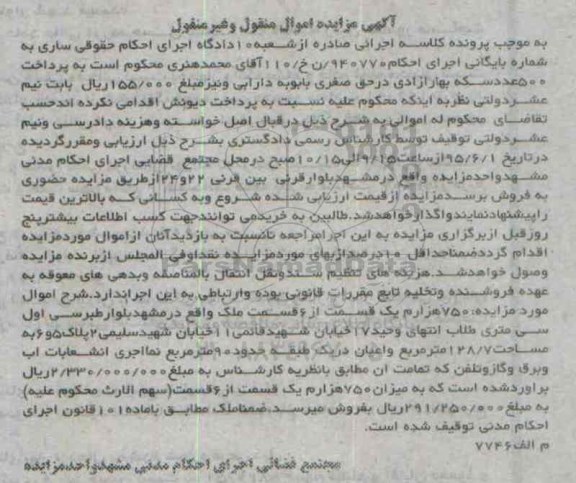 آگهی مزایده اموال منقول وغیرمنقول
به موجب پرونده کلاسه اجرائی صادره ازشعبه۱۰دادگاه اجرای احکام حقوقی ساری به
شماره بایگانی اجرای احکام۹۴۰۷۷۰/ن خ/۱۱۰آقای محمدهنری محکوم است به پرداخت
۵۰۰عددسکه بهارازادی درحق صغری بابویه دارابی ونیزمبلغ ۱۵۵/۰۰۰ریال بابت نیم
عشردولتی نظربه اینکه محکوم علیه نسبت به پرداخت دیونش اقدامی نکرده اندحسب
تقاضای محکوم له اموالی به شرح ذیل درقبال اصل خواسته وهزینه دادرسی ونیم
عشردولتی توقیف توسط کارشناس رسمی دادگستری بشرح ذیل ارزیابی ومقررگردیده
درتاریخ ۹۵/۶/۱ازساعت۹/۱۵الی۱۰/۱۵صبح درمحل مجتمع قضایی اجرای احکام مدنی
مشهدواحدمزایده واقع درمشهدبلوارقرنی بین قرنی ۲۲و۲۴ازطریق مزایده حضوری
به فروش برسدمزایده ازقیمت ارزیابی شده شروع وبه کسانی که بالاترین قیمت
راپیشنهادنمایندواگذارخواهدشد.طالبین به خریدمی توانندجهت کسب اطلاعات بیشترپنج
روزقبل ازبرگزاری مزایده به این اجرامراجعه تانسبت به بازدیدآنان ازاموال موردمزایده
اقدام گرددضمناحداقل ۱۰درصدازبهای موردمزایده نقداوفی المجلس ازبرنده مزایده
وصول خواهدشد.هزینه های تنظیم سندونقل انتقال بالمناصفه وبدهی های معوقه به
عهده فروشنده وتخلیه تابع مقررات قانونی بوده وارتباطی به این اجراندارد.شرح اموال
مورد مزایده:۷۵۰هزارم یک قسمت از۶قسمت ملک واقع درمشهدبلوارطبرسی اول
سی متری طلاب انتهای وحید۱۷خیابان شهیدقائمی۱۱خیابان شهیدسلیمی۲پلاک۵و۶به
مساحت۱۲۸/۷مترمربع واعیان دریک طبقه حدود۹۰مترمربع نمااجری انشعابات اب
وبرق وگازوتلفن که تمامت ان مطابق بانظریه کارشناس به مبلغ۲/۳۳۰/۰۰۰/۰۰۰ریال
براوردشده است که به میزان۷۵۰هزارم یک قسمت از۶قسمت(سهم الارث محکوم علیه)
به مبلغ۲۹۱/۲۵۰/۰۰۰ریال بفروش میرسد.ضمناملک مطابق باماده۱۰۱قانون اجرای
احکام مدنی توقیف شده است.
م الف۷۷۴۶
مجتمع قضائی اجرای احکام مدنی مشهدواحدمزایده